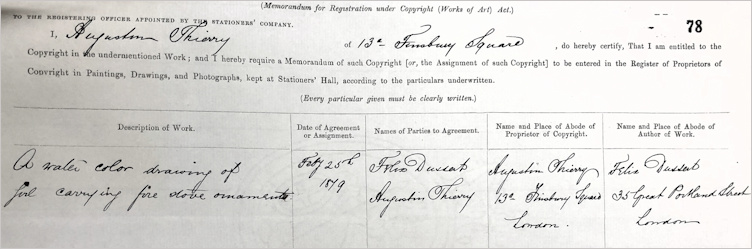 (Memorandum for Registration under Copyright (Works of Art) Act.)
78
TO THE REGISTERING OFFICER APPOINTED BY THE STATIONERS' COMPANY.
I, Augustin Thierry of 13a Finsbury Square, do hereby certify, That I am entitled to the
Copyright in the undermentioned Work; and I hereby require a Memorandum of such Copyright [or, the Assignment of such Copyright] to be entered in the Register of Proprietors of
Copyright in Paintings, Drawings, and Photographs, kept at Stationers' Hall, according to the particulars underwritten.
(Every particular given must be clearly written.)
Description of Work.
Date of Agreement
or Assignment.
Names of Parties to Agreement.
Name and Place of Abode of
Proprietor of Copyright.
Name and Place of Abode of
Author of Work.
A water color drawing of
girl carrying fire stove ornaments
Feby 25th
1879
Felix Dussert
Augustin Thierry
Augustin Thierry
13a Finsbury Square
London.
Felix Dussert
35 Great Portland Street
London